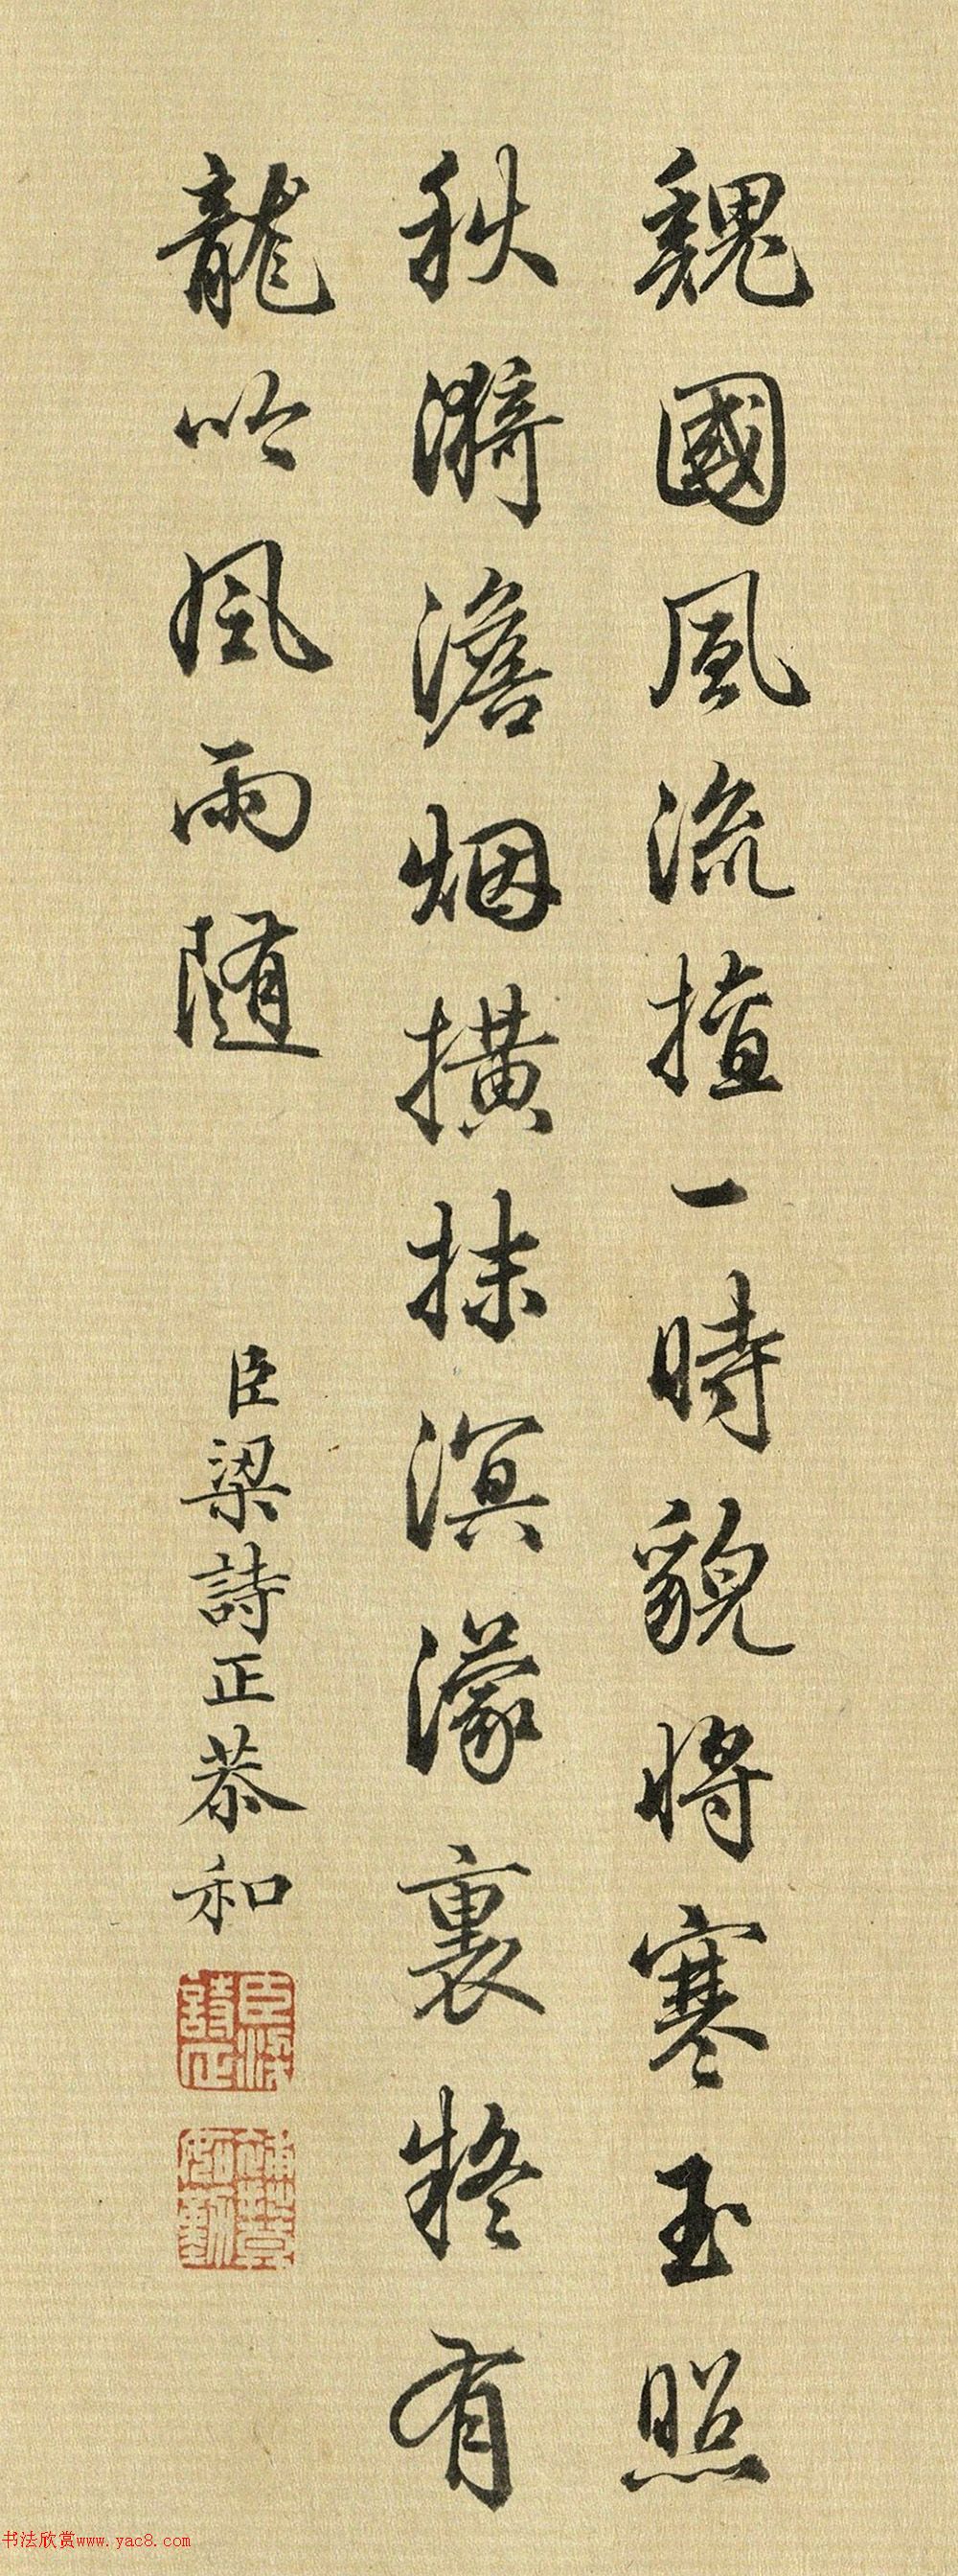 魏國風流擅一時貌將寒玉照
秋漪澹烟撗抹溟濛裏疑有
龍吟風雨隨
臣梁詩正恭和
臣梁詩正
書法欣赏www.yac8.com